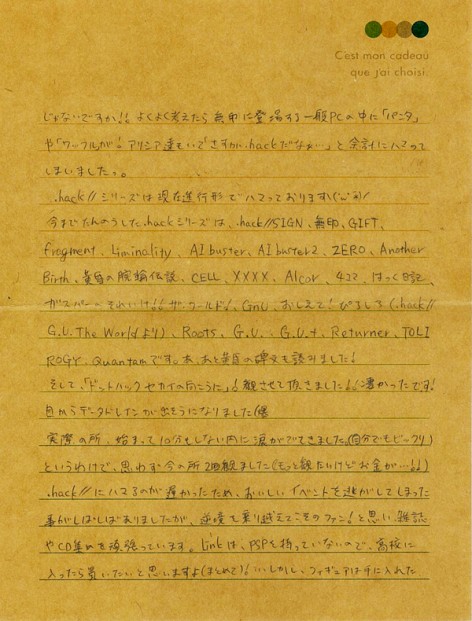 C'est mon cadeau
que j'ai choisi.
じゃないですか!! よくよく考えたら無印に登場する一般PCの中に「パンタ」
や「ワッフル」が! アリシア達もいてさすが.hackだなぁ…」と余計にハマって
しまいました。
.hack//シリーズは現在進行形でハマっております
今までたんのうした.hackシリーズは、.hack//SIGN、無印、GIFT、
fragment、Liminality、AI buster、AI buster2、ZERO、Another
Birth、黄昏の腕輪伝説、CELL、XXXX、Alcor、4コマ、はっく日記、
ガスパーのそれいけ!!ザ・ワールド!、GnU、おしえて!ぴろしさん(.hack//
G.U. The Worldより)、Roots、G.U.、G.U.+、Returner、TRILO
ROGY、Quantumです。あ、あと黄昏の碑文も読みました!
そして、「ドットハック セカイの向こうに」!観させて頂きました!!凄かったです!
目からデータドレインが出そうになりました
実際の所、始まって10分もしない内に涙がでてきました。(自分でもビックリ)
というわけで、思わず今の所2回観ました(もっと観たいけどお金が…!!)
.hack//にハマるのが遅かったため、おいしいイベントを逃がしてしまった
事がしばしばありましたが、逆境を乗り越えてこそのファン!と思い、雑誌
やCD集めを頑張っています。Linkは、PSPを持っていないので、高校に
入ったら買いたいと思いますよ(まとめて)! しかし、フィギュアは手に入れた